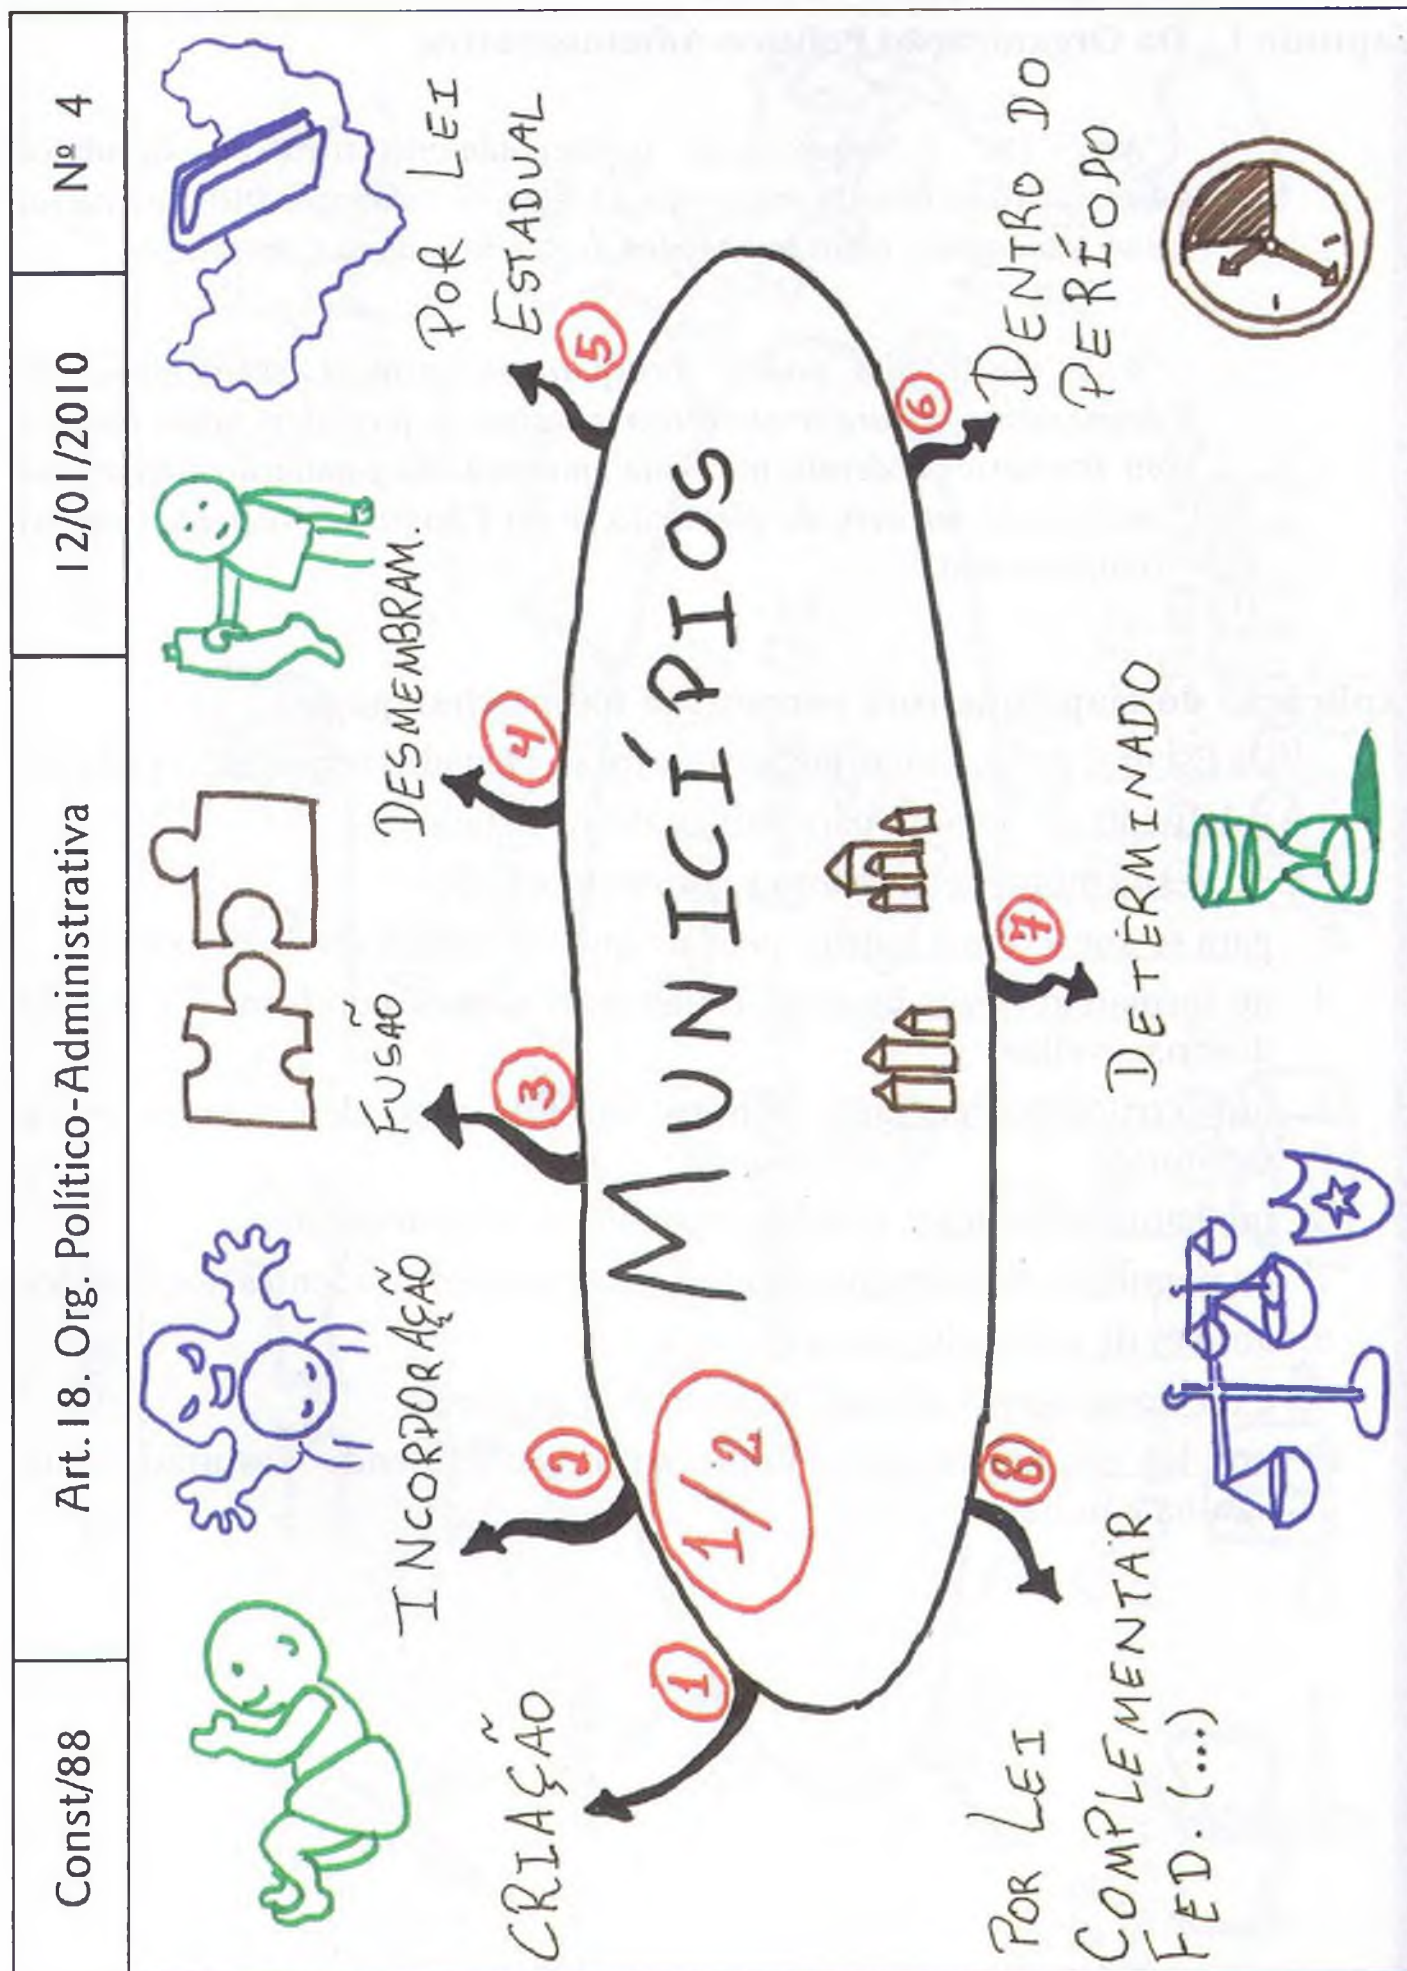 Const/88
Art.18. Org. Político-Administrativa
12/01/2010
Nº 4
MUNICÍPIOS
1/2
1
CRIAÇÃO
2
INCORPORAÇÃO
3
FUSÃO
4
DESMEMBRAM.
5
POR LEI
ESTADUAL
6
DENTRO DO
PERÍODO
7
DETERMINADO
8
POR LEI
COMPLEMENTAR
FED. (...)